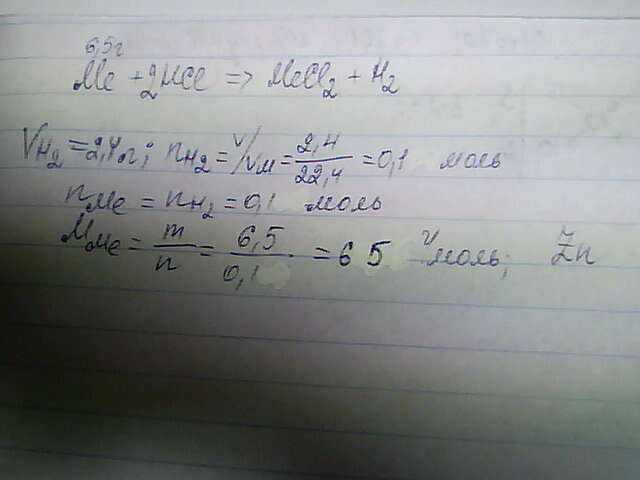 6,5г
Me + 2HCl => MeCl2 + H2
VH2 = 2,4л; nH2 = V/VM = 2,4/22,4 = 0,1 моль
nMe = nH2 = 0,1 моль
MMe = m/n = 6,5/0,1 = 65 г/моль; Zn